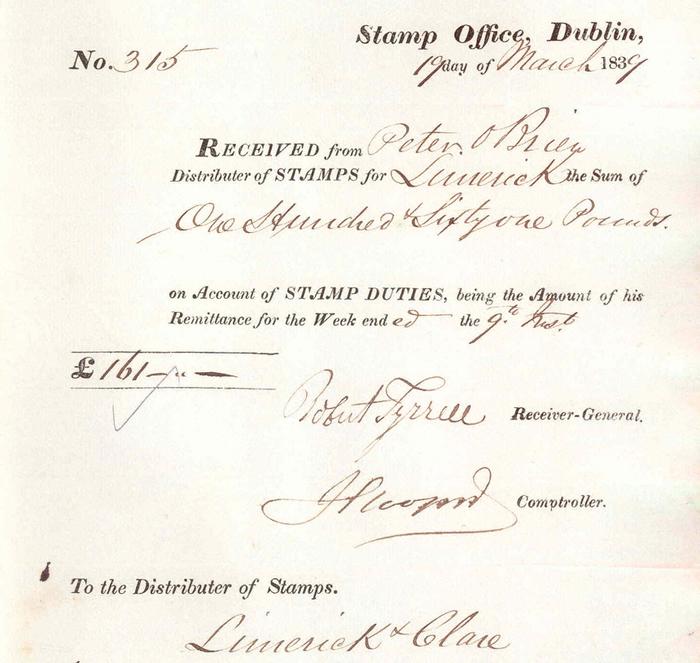 Stamp Office, Dublin,
No. 315
19 day of March 1839
RECEIVED from Peter O'Brien
Distributer of STAMPS for Limerick the Sum of
One Hundred & Sixty one Pounds.
on Account of STAMP DUTIES, being the Amount of his
Remittance for the Week end ed the 9th Inst.
£161 - " -
Robert Tyrrell Receiver-General.
Comptroller.
To the Distributer of Stamps.
Limerick & Clare